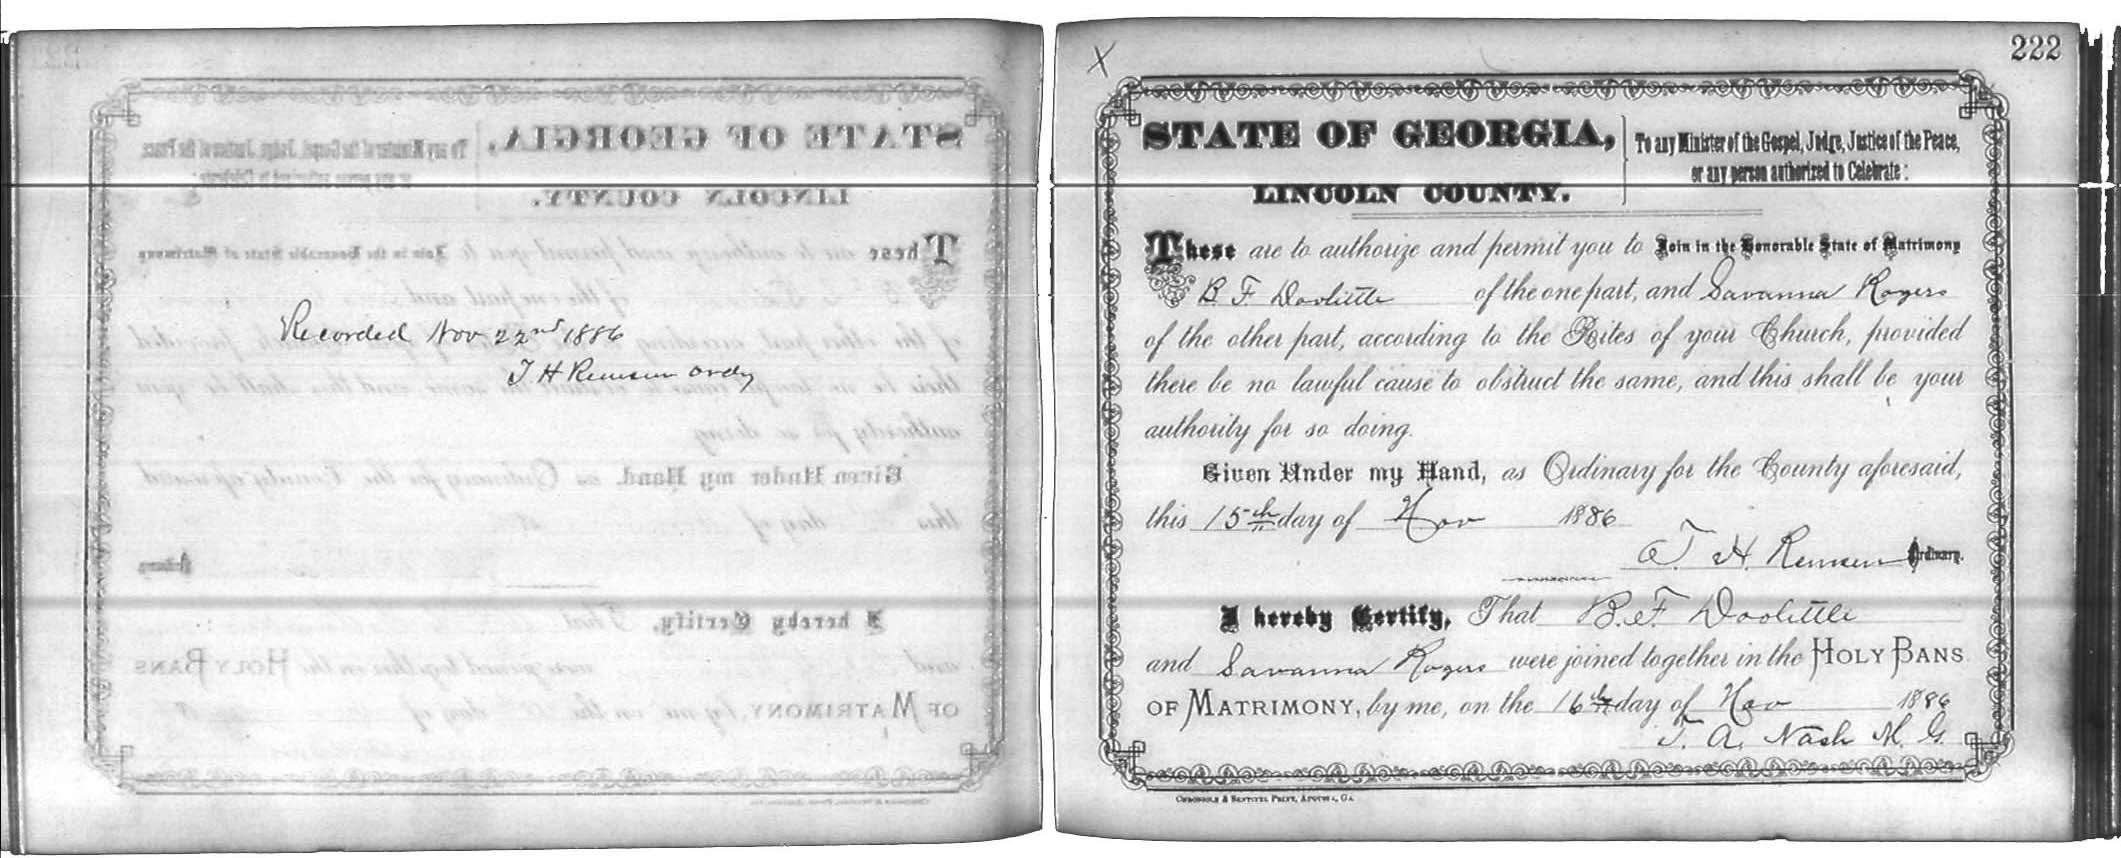 Recorded Nov 22nd 1886
T H Remsen Ordy
X
222
STATE OF GEORGIA,
LINCOLN COUNTY.
To any Minister of the Gospel, Judge, Justice of the Peace,
or any person authorized to Celebrate:
These are to authorize and permit you to Join in the Honorable State of Matrimony
B. F. Doolittle of the one part, and Savanna Rogers
of the other part, according to the Rites of your Church, provided
there be no lawful cause to obstruct the same, and this shall be your
authority for so doing.
Given Under my Hand, as Ordinary for the County aforesaid,
this 15th day of Nov 1886
T. H. Remsen Ordinary.
I hereby Certify, That B. F. Doolittle
and Savanna Rogers were joined together in the HOLY BANS
OF MATRIMONY, by me, on the 16th day of Nov 1886
T. A. Nash M. G.
CHRONICLE & SENTINEL PRINT, AUGUSTA, GA